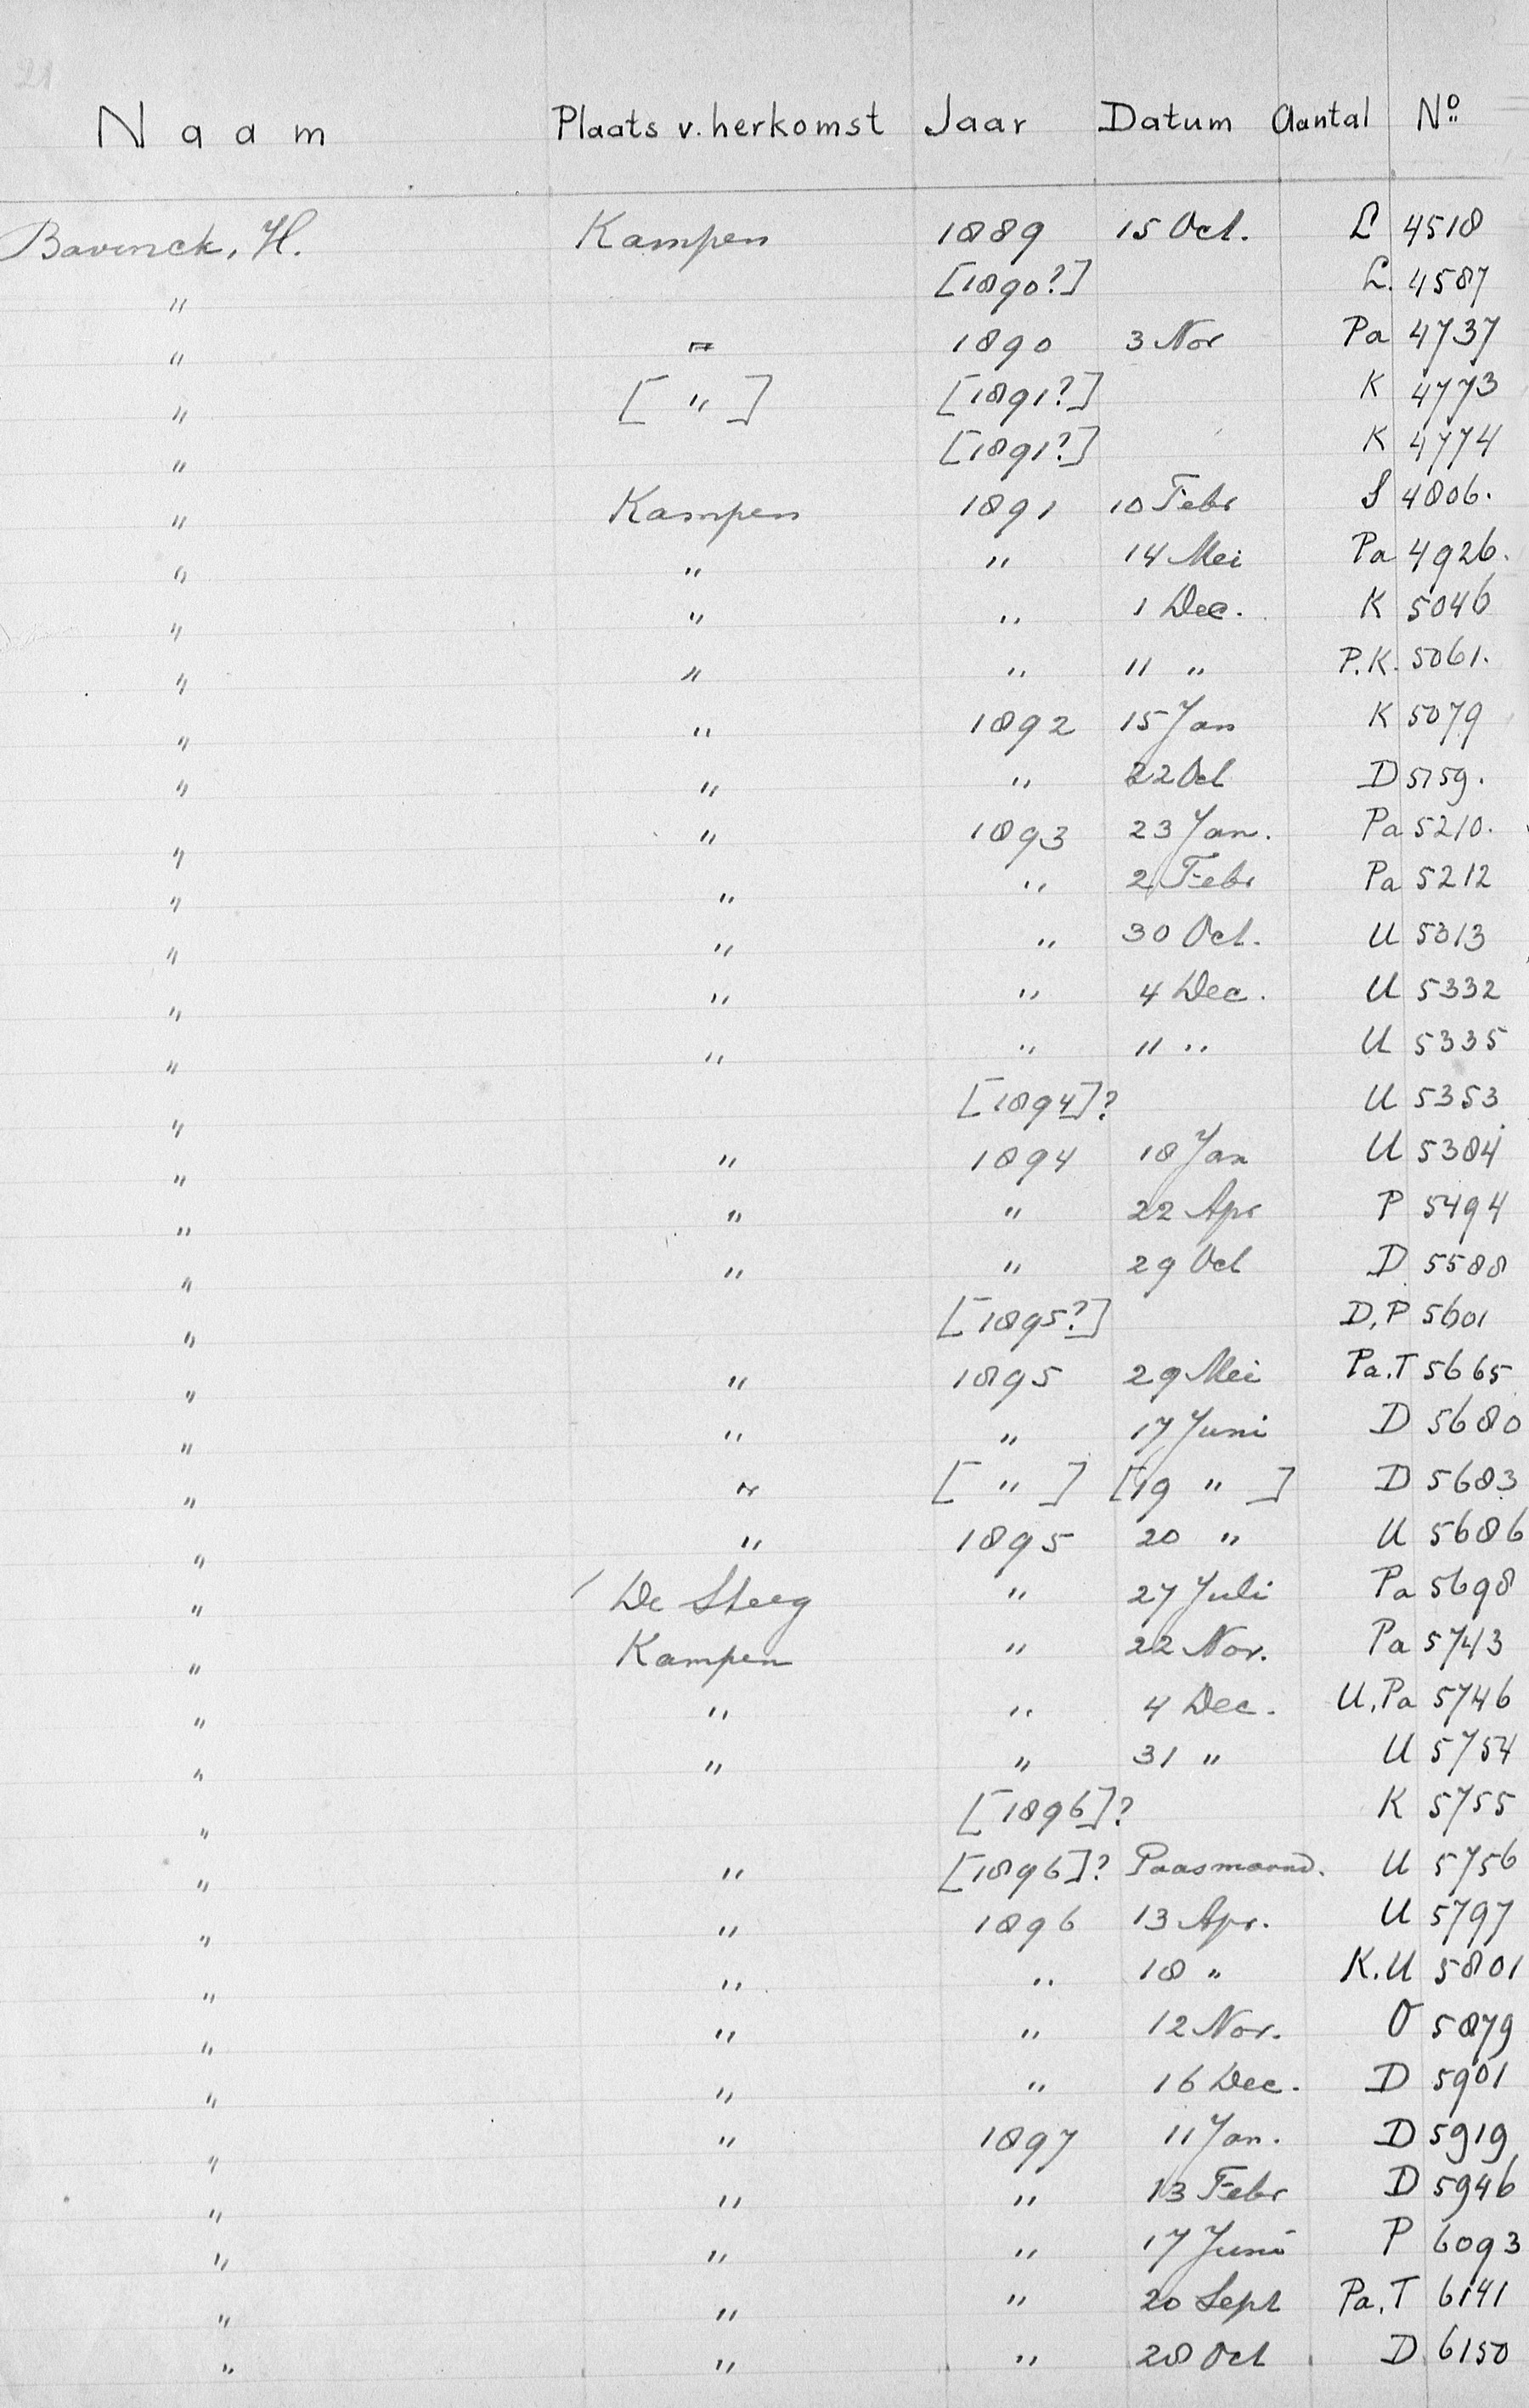 21
Naam Plaats v. herkomst Jaar Datum Aantal No
Bavinck, H. Kampen 1889 15 Oct. L 4518
" [1890?] L. 4587
" " 1890 3 Nov Pa 4737
" [ " ] [1891?] K 4773
" [1891?] K 4774
" Kampen 1891 10 Febr S 4806.
" " " 14 Mei Pa 4926.
" " " 1 Dec. K 5046
" " " 11 " P.K. 5061.
" " 1892 15 Jan K 5079
" " " 22 Oct D 5159.
" " 1893 23 Jan. Pa 5210.
" " " 2 Febr Pa 5212
" " " 30 Oct. U 5313
" " " 4 Dec. U 5332
" " " 11 " U 5335
" [1894]? U 5353
" " 1894 18 Jan U 5384
" " " 22 Apr P 5494
" " " 29 Oct D 5588
" [1895?] D,P 5601
" " 1895 29 Mei Pa.T 5665
" " " 17 Juni D 5680
" " [ " ] [19 " ] D 5683
" " 1895 20 " U 5686
" De Steeg " 27 Juli Pa 5698
" Kampen " 22 Nov. Pa 5743
" " " 4 Dec. U,Pa 5746
" " " 31 " U 5754
" [1896]? K 5755
" " [1896]? Paasmaand. U 5756
" " 1896 13 Apr. U 5797
" " " 18 " K.U 5801
" " " 12 Nov. O 5879
" " " 16 Dec. D 5901
" " 1897 11 Jan. D 5919
" " " 13 Febr D 5946
" " " 17 Juni P 6093
" " " 20 Sept Pa.T 6141
" " " 28 Oct D 6150